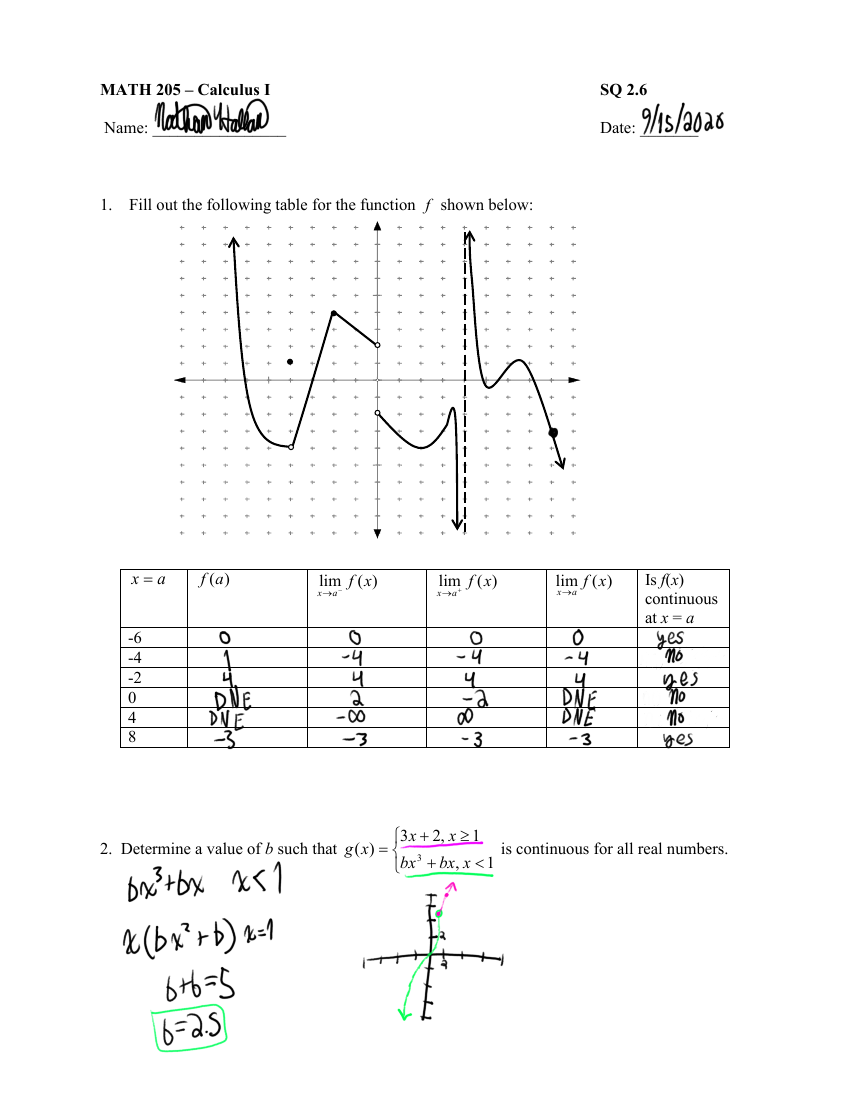 MATH 205 – Calculus I SQ 2.6
Name: Nathan Date: 9/15/2020
1. Fill out the following table for the function f shown below:
x = a f(a) lim x→a⁻ f(x) lim x→a⁺ f(x) lim x→a f(x) Is f(x) continuous at x = a
-6 0 0 0 0 yes
-4 1 -4 -4 -4 no
-2 4 4 4 4 yes
0 DNE 2 -2 DNE no
4 DNE -∞ ∞ DNE no
8 -3 -3 -3 -3 yes
2. Determine a value of b such that g(x) = { 3x + 2, x ≥ 1
bx³ + bx, x < 1 is continuous for all real numbers.
bx³+bx x<1
x(bx²+b) x=1
b+b=5
b=2.5
2
2